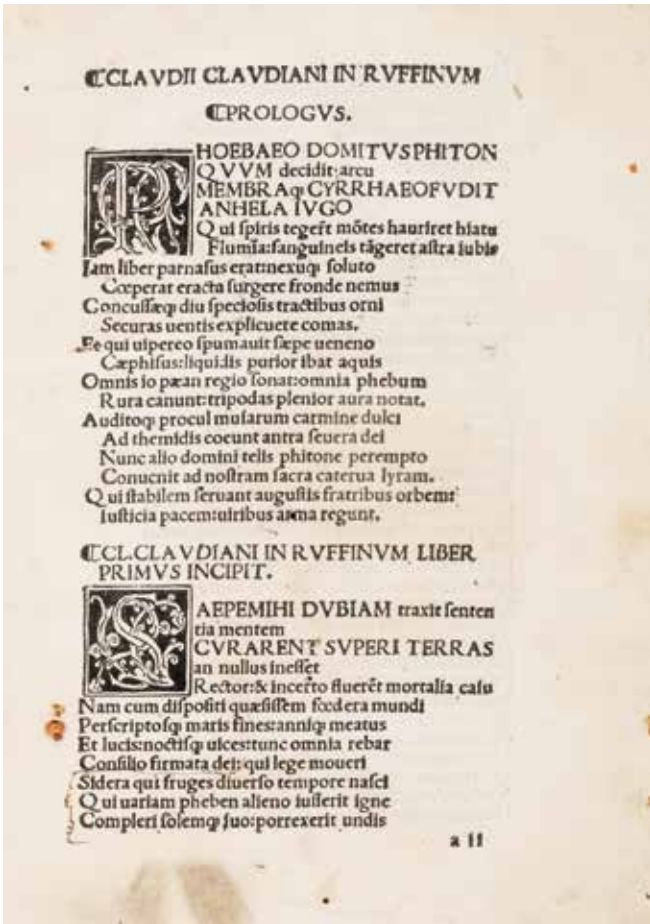 ⸿CLAVDII CLAVDIANI IN RVFFINVM
⸿PROLOGVS.
PHOEBAEO DOMITVS PHITON
QVVM decidit arcu
MEMBRAqꝫ CYRRHAEO FVDIT
ANHELA IVGO
Qui ſpiris tegeret mōtes hauriret hiatu
Flumīa: ſanguineis tāgeret aſtra iubis
Iam liber parnaſus erat: nexuqꝫ ſoluto
Cœperat eracta ſurgere fronde nemus
Concuſſæqꝫ diu ſpecioſis tractibus orni
Securas uentis explicuere comas.
Ee qui uipereo ſpumauit ſæpe ueneno
Cæphiſus: liquidis purior ibat aquis
Omnis io pæan regio ſonat: omnia phebum
Rura canunt: tripodas plenior aura notat.
Auditoqꝫ procul muſarum carmine dulci
Ad themidis coeunt antra ſeuera dei
Nunc alio domini telis phitone perempto
Conuenit ad noſtram ſacra caterua lyram.
Qui ſtabilem ſeruant auguſtis fratribus orbem:
Iuſticia pacem: uiribus arma regunt.
⸿CL. CLAVDIANI IN RVFFINVM LIBER
PRIMVS INCIPIT.
SAEPE MIHI DVBIAM traxit ſenten
tia mentem
CVRARENT SVPERI TERRAS
an nullus ineſſet
Rector: & incerto fluerēt mortalia caſu
Nam cum diſpoſiti quæſiſſem fœdera mundi
Perſcriptoſqꝫ maris fines: anniqꝫ meatus
Et lucis: noctiſqꝫ uices: tunc omnia rebar
Conſilio firmata dei: qui lege moueri
Sidera qui fruges diuerſo tempore naſci
Qui uariam pheben alieno iuſſerit igne
Compleri ſolemqꝫ ſuo: porrexerit undis
a II